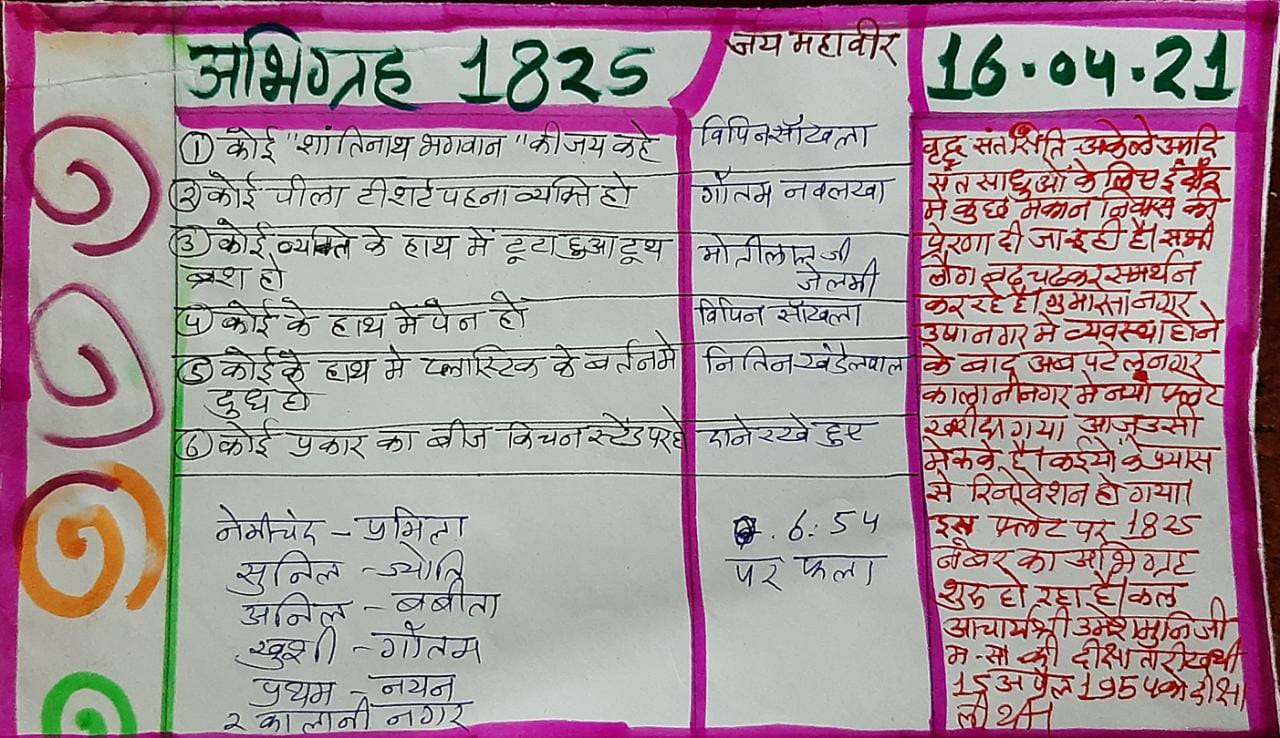 अभिग्रह 1825
जय महावीर
16.04.21
① कोई "शांतिनाथ भगवान" की जय कहे
विपिन साँखला
② कोई पीला टीशर्ट पहना व्यक्ति हो
गौतम नवलखा
③ कोई व्यक्ति के हाथ में टूटा हुआ टूथ
ब्रश हो
मोतीलाल जी
जेलमी
④ कोई के हाथ में पेन हो
विपिन साँखला
⑤ कोई के हाथ मे प्लास्टिक के बर्तन मे
दुध हो
नितिन खंडेलवाल
⑥ कोई प्रकार का बीज किचन स्टेंड पर हो
दाने रखे हुए
नेमीचंद - प्रमिला
सुनिल - ज्योति
अनिल - बबीता
खुशी - गौतम
प्रथम - नयन
२ कालानी नगर
6:54
पर फला
वृद्ध संत सति अकेले आदि
संत साधुओं के लिए इंदौर
मे कुछ मकान निवास की
प्रेरणा दी जा रही है। सभी
लोग बढ़ चढकर समर्थन
कर रहे है। गुमास्ता नगर
उषा नगर मे व्यवस्था होने
के बाद अब पटेल नगर
कालानी नगर मे नया फ्लेट
खरीदा गया आज उसी
है। कईयों के प्रयास
से रिनोवेशन हो गया।
इस फ्लेट पर 1825
नंबर का अभिग्रह
शुरु हो रहा है। कल
आचार्य श्री उमेशमुनि जी
म.सा की दीक्षा तारीख थी
15 अप्रैल 1954 को दीक्षा
ली थी।